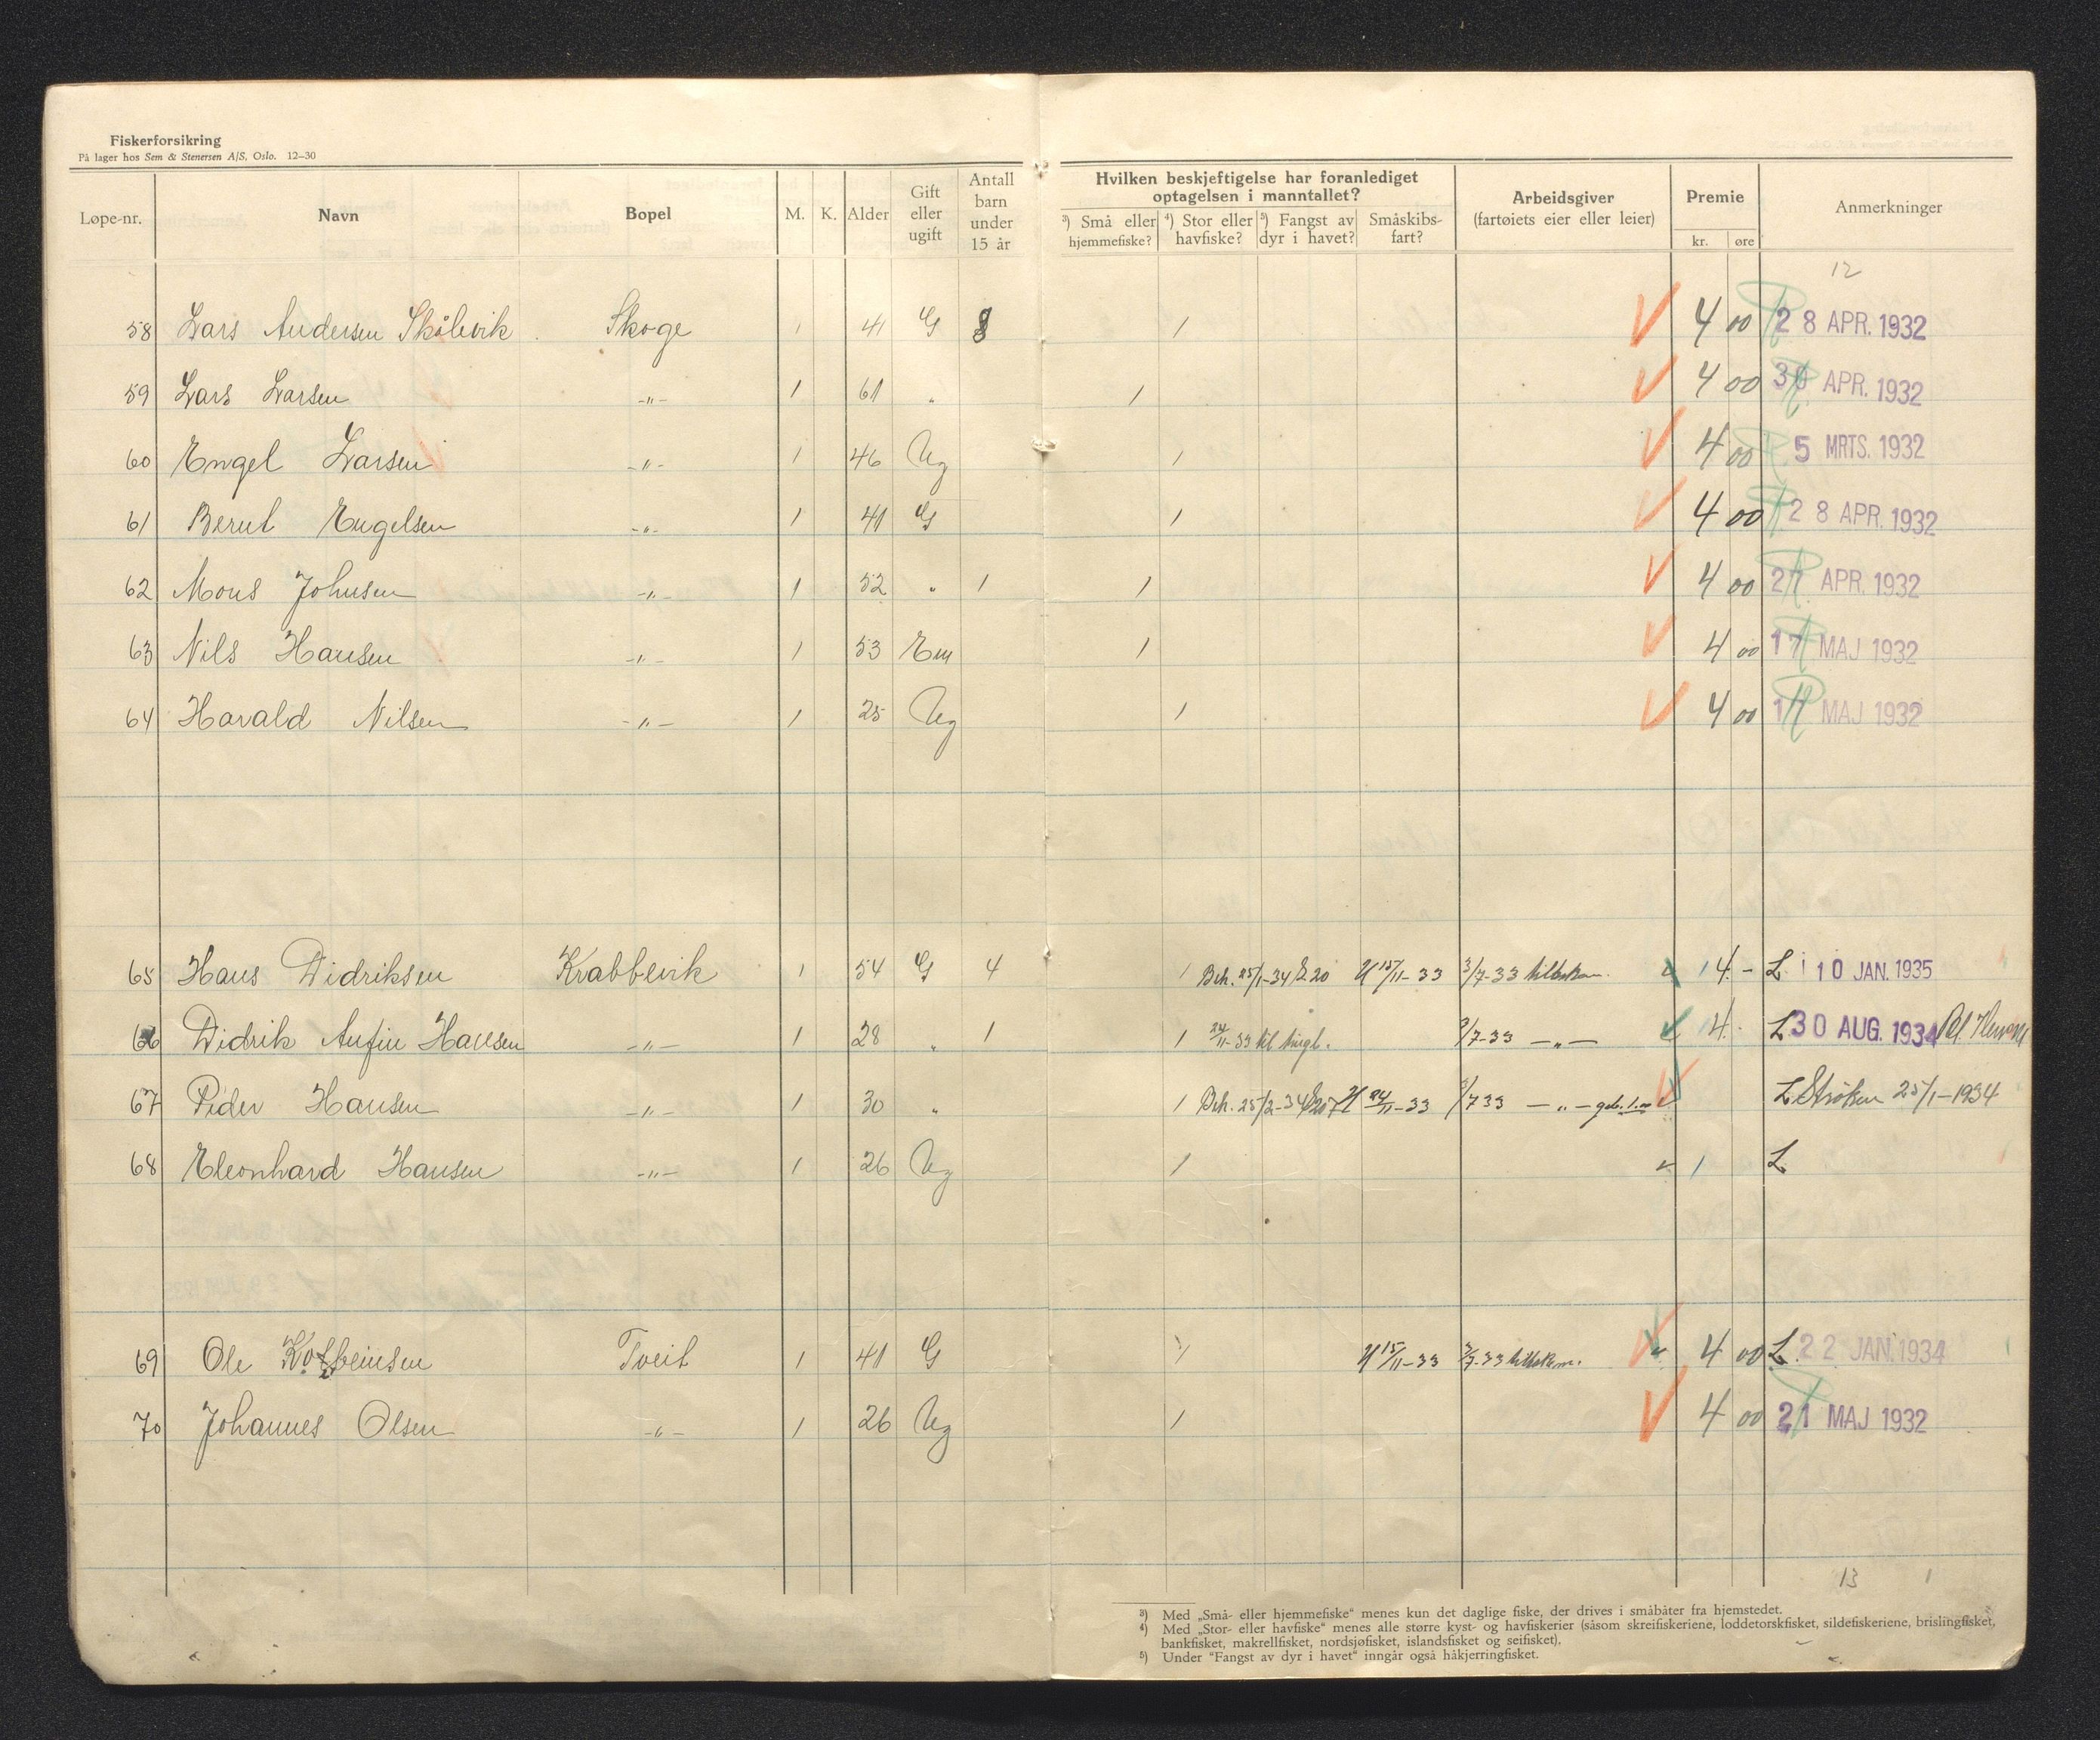 Fiskerforsikring
På lager hos Sem & Stenersen A/S, Oslo. 12–30
Løpe-nr. Navn Bopel M. K. Alder Gift eller ugift Antall barn under 15 år
Hvilken beskjeftigelse har foranlediget optagelsen i manntallet?
³) Små eller hjemmefiske? ⁴) Stor eller havfiske? ⁵) Fangst av dyr i havet? Småskibsfart?
Arbeidsgiver (fartøiets eier eller leier) Premie kr. øre Anmerkninger
12
58 Lars Andersen Skålevik Skoge 1 41 G 1 4 00 28 APR. 1932
59 Lars Larsen -"- 1 61 " 1 4 00 30 APR. 1932
60 Engel Larsen -"- 1 46 Ug 1 4 00 5 MRTS. 1932
61 Bernt Engelsen -"- 1 41 G 1 4 00 28 APR. 1932
62 Mons Johnsen -"- 1 52 " 1 1 4 00 27 APR. 1932
63 Nils Hansen -"- 1 53 Em 1 4 00 17 MAJ 1932
64 Harald Nilsen -"- 1 25 Ug 1 4 00 MAJ 1932
65 Hans Didriksen Krabbevik 1 54 G 4 1 Beh. 25/1-34 U 15/11-33 3/7-33 tilbakem. 1 4.- L 10 JAN. 1935
66 Didrik Anfin Hansen -"- 1 28 " 1 1 24/11-33 til 3/7-33 -"- 1 4.- L 30 AUG. 1934
67 Peder Hansen -"- 1 30 " 1 Beh. 25/2-34 24/11-33 3/7 33 -"- geb. 1.00 L Strøken 25/1-1934
68 Eleonhard Hansen -"- 1 26 Ug 1 1 L
69 Ole Tveit 1 41 G 1 U 15/11-33 3/7-33 tilbakem. 4 00 L. 22 JAN. 1934
70 Johannes Olsen -"- 1 26 Ug 1 4 00 21 MAJ 1932
13 1
³) Med „Små- eller hjemmefiske“ menes kun det daglige fiske, der drives i småbåter fra hjemstedet.
⁴) Med „Stor- eller havfiske“ menes alle større kyst- og havfiskerier (såsom skreifiskeriene, loddetorskfisket, sildefiskeriene, brislingfisket,
bankfisket, makrellfisket, nordsjøfisket, islandsfisket og seifisket).
⁵) Under "Fangst av dyr i havet" inngår også håkjerringfisket.